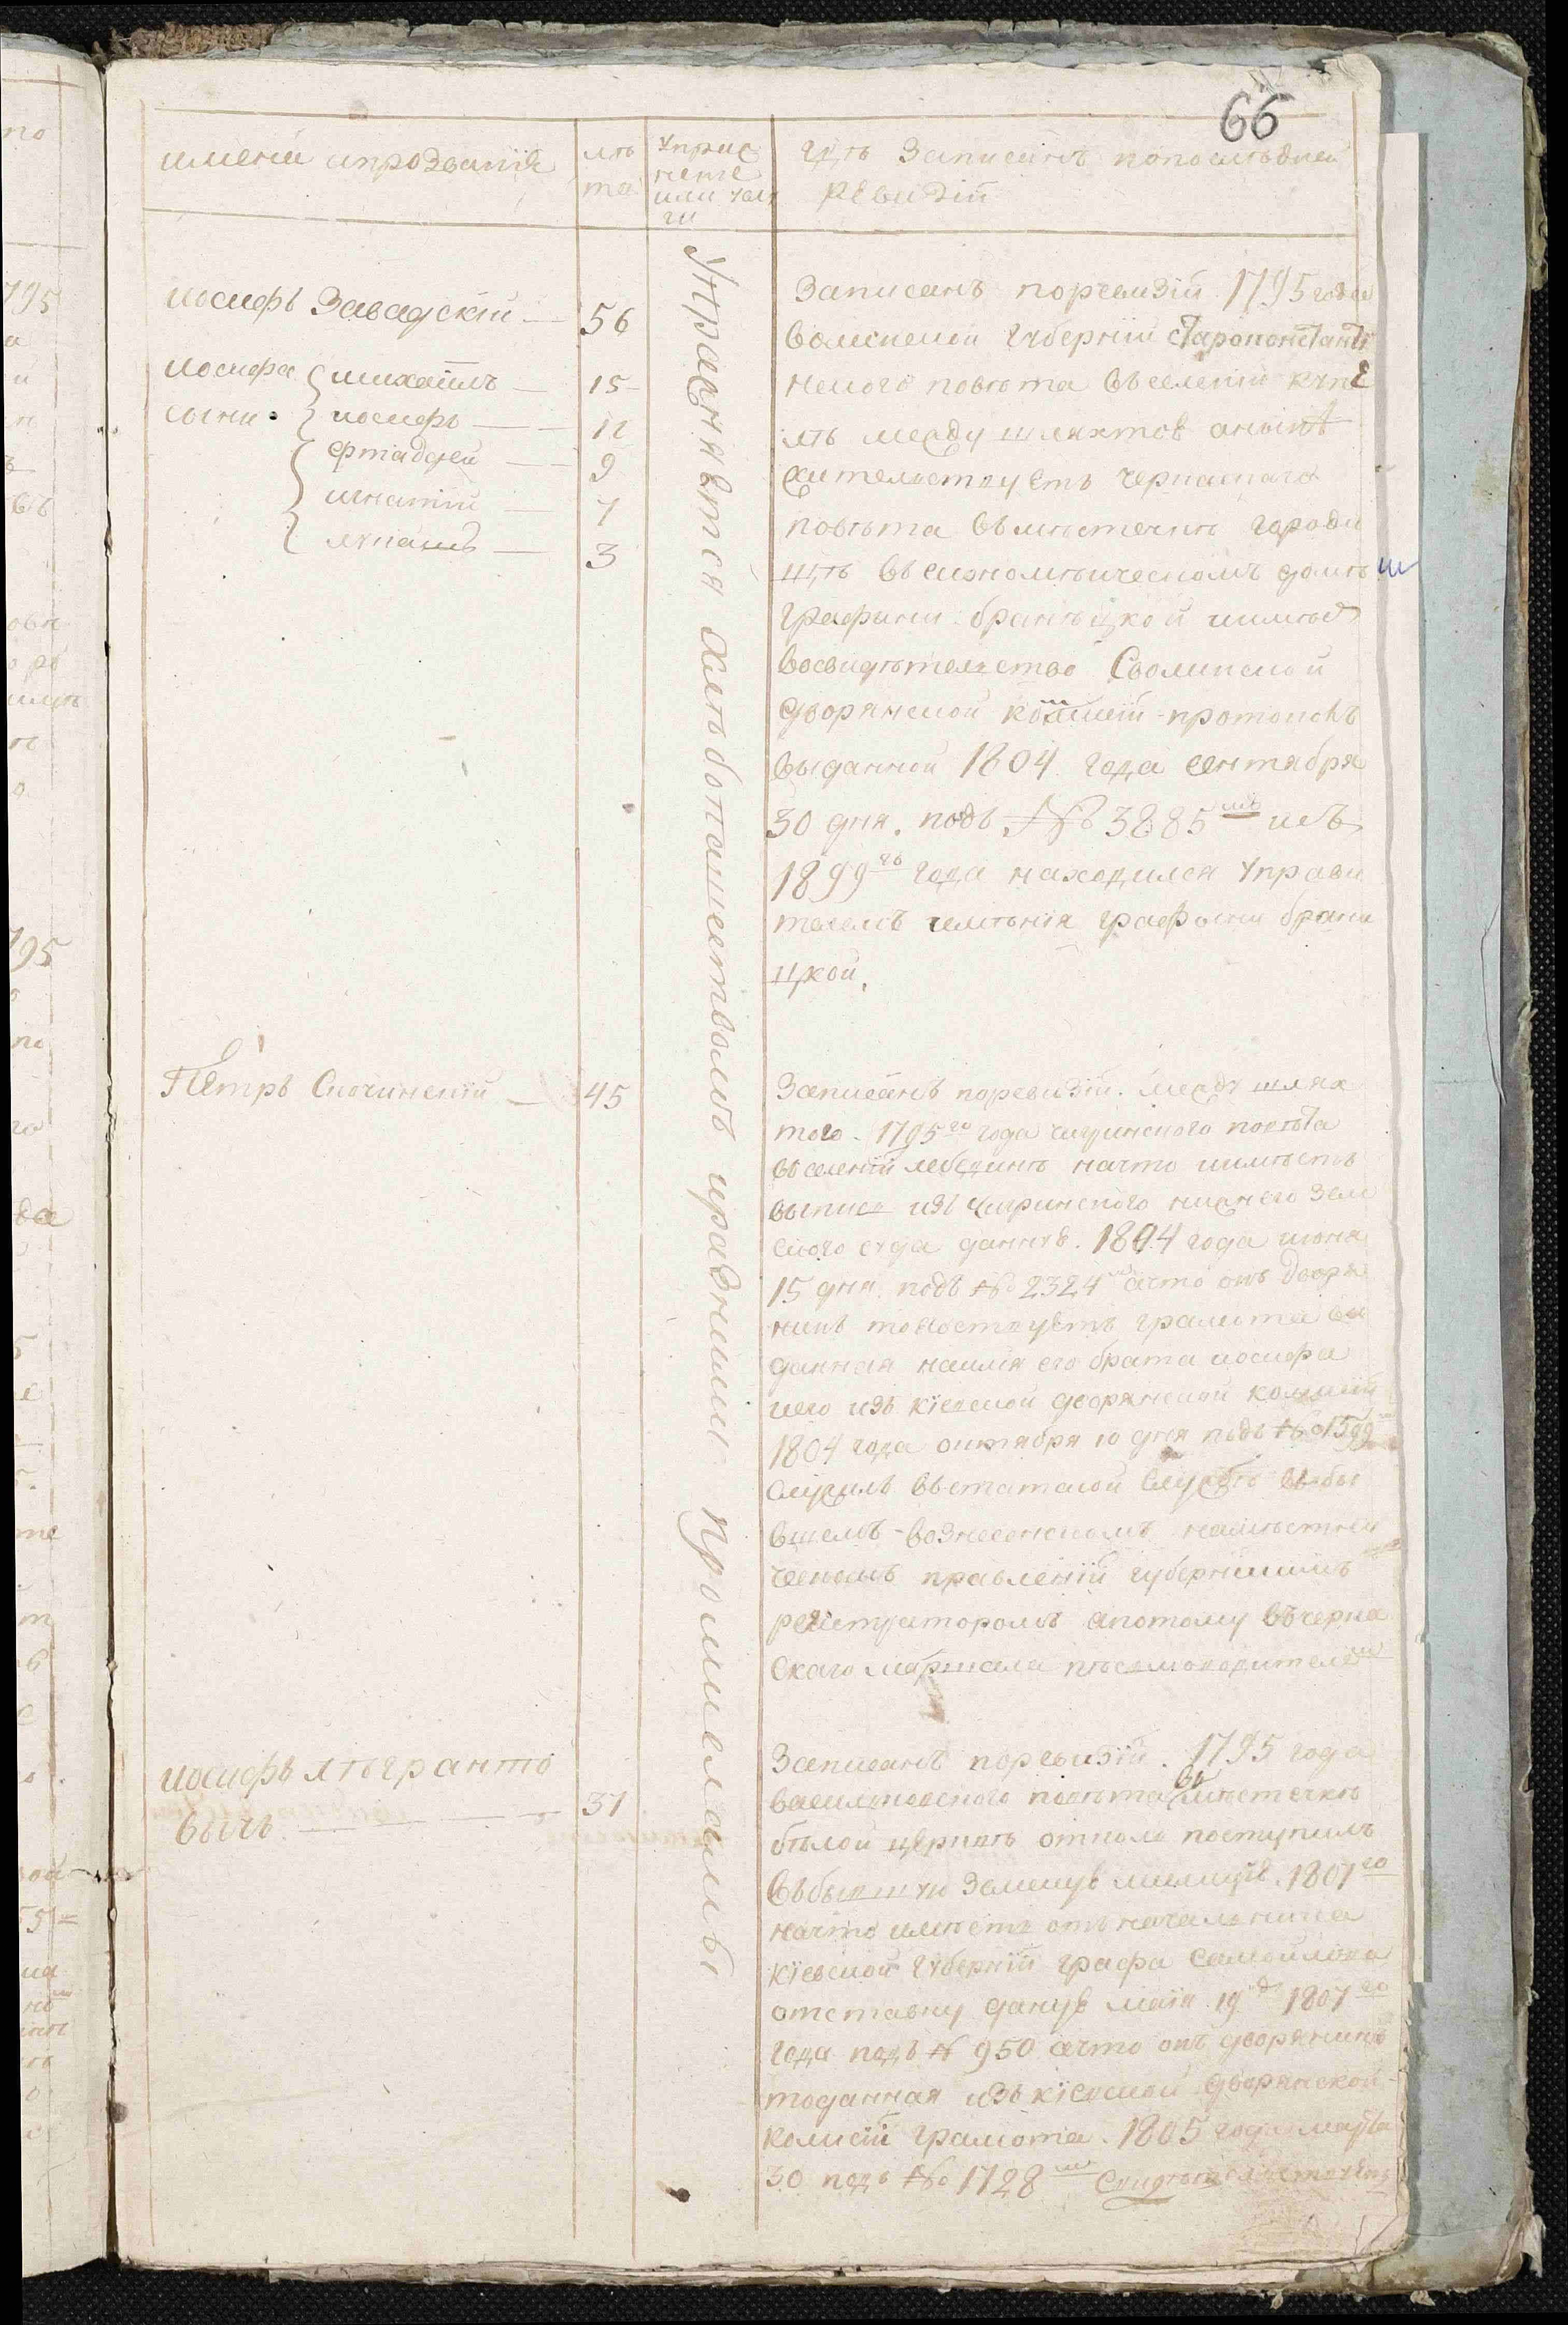 66
имена ипрозвания
лѣ
та
Упраж
нение
или услу
ги
гдѣ записанъ попослѣдней
Ревизій
иосифъ Завадскій — 56
иосифа
сыни
михаилъ — 15
иосифъ — 12
фтадѣей — 9
игнатій — 7
лукашъ — 3
Упражняется хлѣбопашествомъ иразними промислами
Записанъ поревизій 1795 года
волинской губерній староконстанти
невого повѣта въселеній купе
лѣ между шляхтов анынѣ
жительствуетъ черкаского
повѣта вмѣстечкѣ городи
щѣ въ економическомъ домѣ
графини браницкой иимѣе
восвидѣтелство Сволинской
дворянской комисій протоколъ
выданной 1804 года сентября
30 дня. подъ № 3885 исъ
1899 года находился Управи
телемъ имѣнія графини брани
цкой.
Петръ Скочинскій — 45
Записанъ поревизій. между шлях
того. 1795го года чигринского повѣта
въ селеній лебединѣ начто имѣетъ
выписъ изъ чигринского нижнего зем
ского суда данную. 1804 года июня
15 дня подъ № 2324 ачто онъ дворя
нинъ то грамита ви
данная наимя его брата иосифа
изъ кіевской дворянской комисій
1804 года октября 10 дня подъ № 1599
служилъ въстатской службѣ въбы
вшемъ вознесенскомъ намѣстни
ческомъ правленій губернскимъ
регистраторомъ апотому въчерка
скаго маршала писмоводителемъ
иосифъ лѣгранто
вичъ — 31
Записанъ поревизій. 1795 года
василковского повѣта въ мѣстечкѣ
бѣлой церквѣ откол поступилъ
въбывшую земскую милицію. 1807го
начто имѣетъ отъ началника
кіевской губерній графа Самойлова
отставку данную маія 19 д 1807го
года подъ № 950 ачто онъ дворянинъ
тоданная изъ кіевской дворянской
комисій грамота. 1805 года марта
30 подъ № 1728